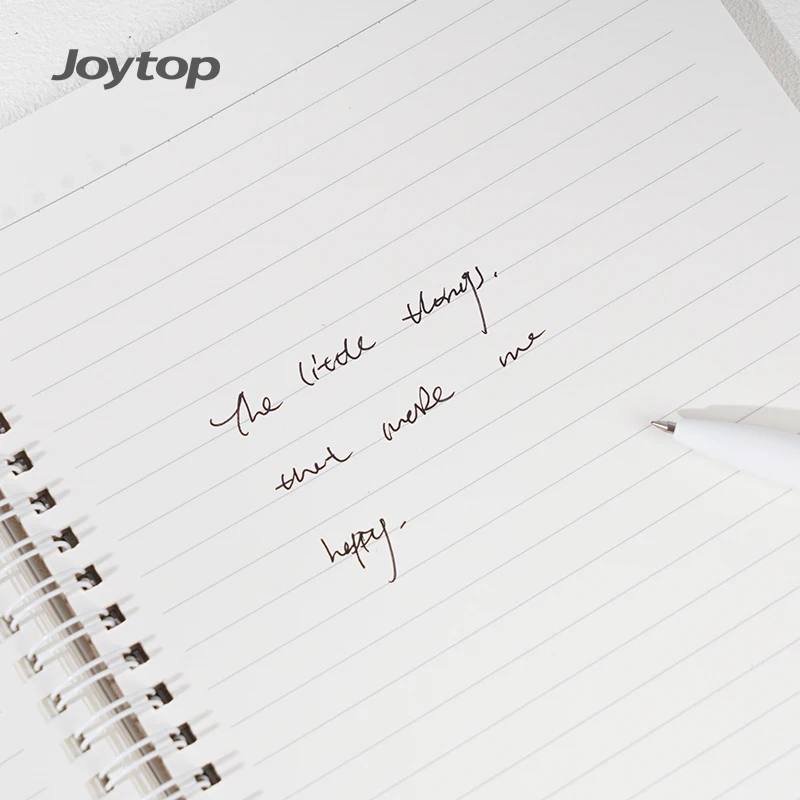 Joytop
The little things.
that make me
happy.